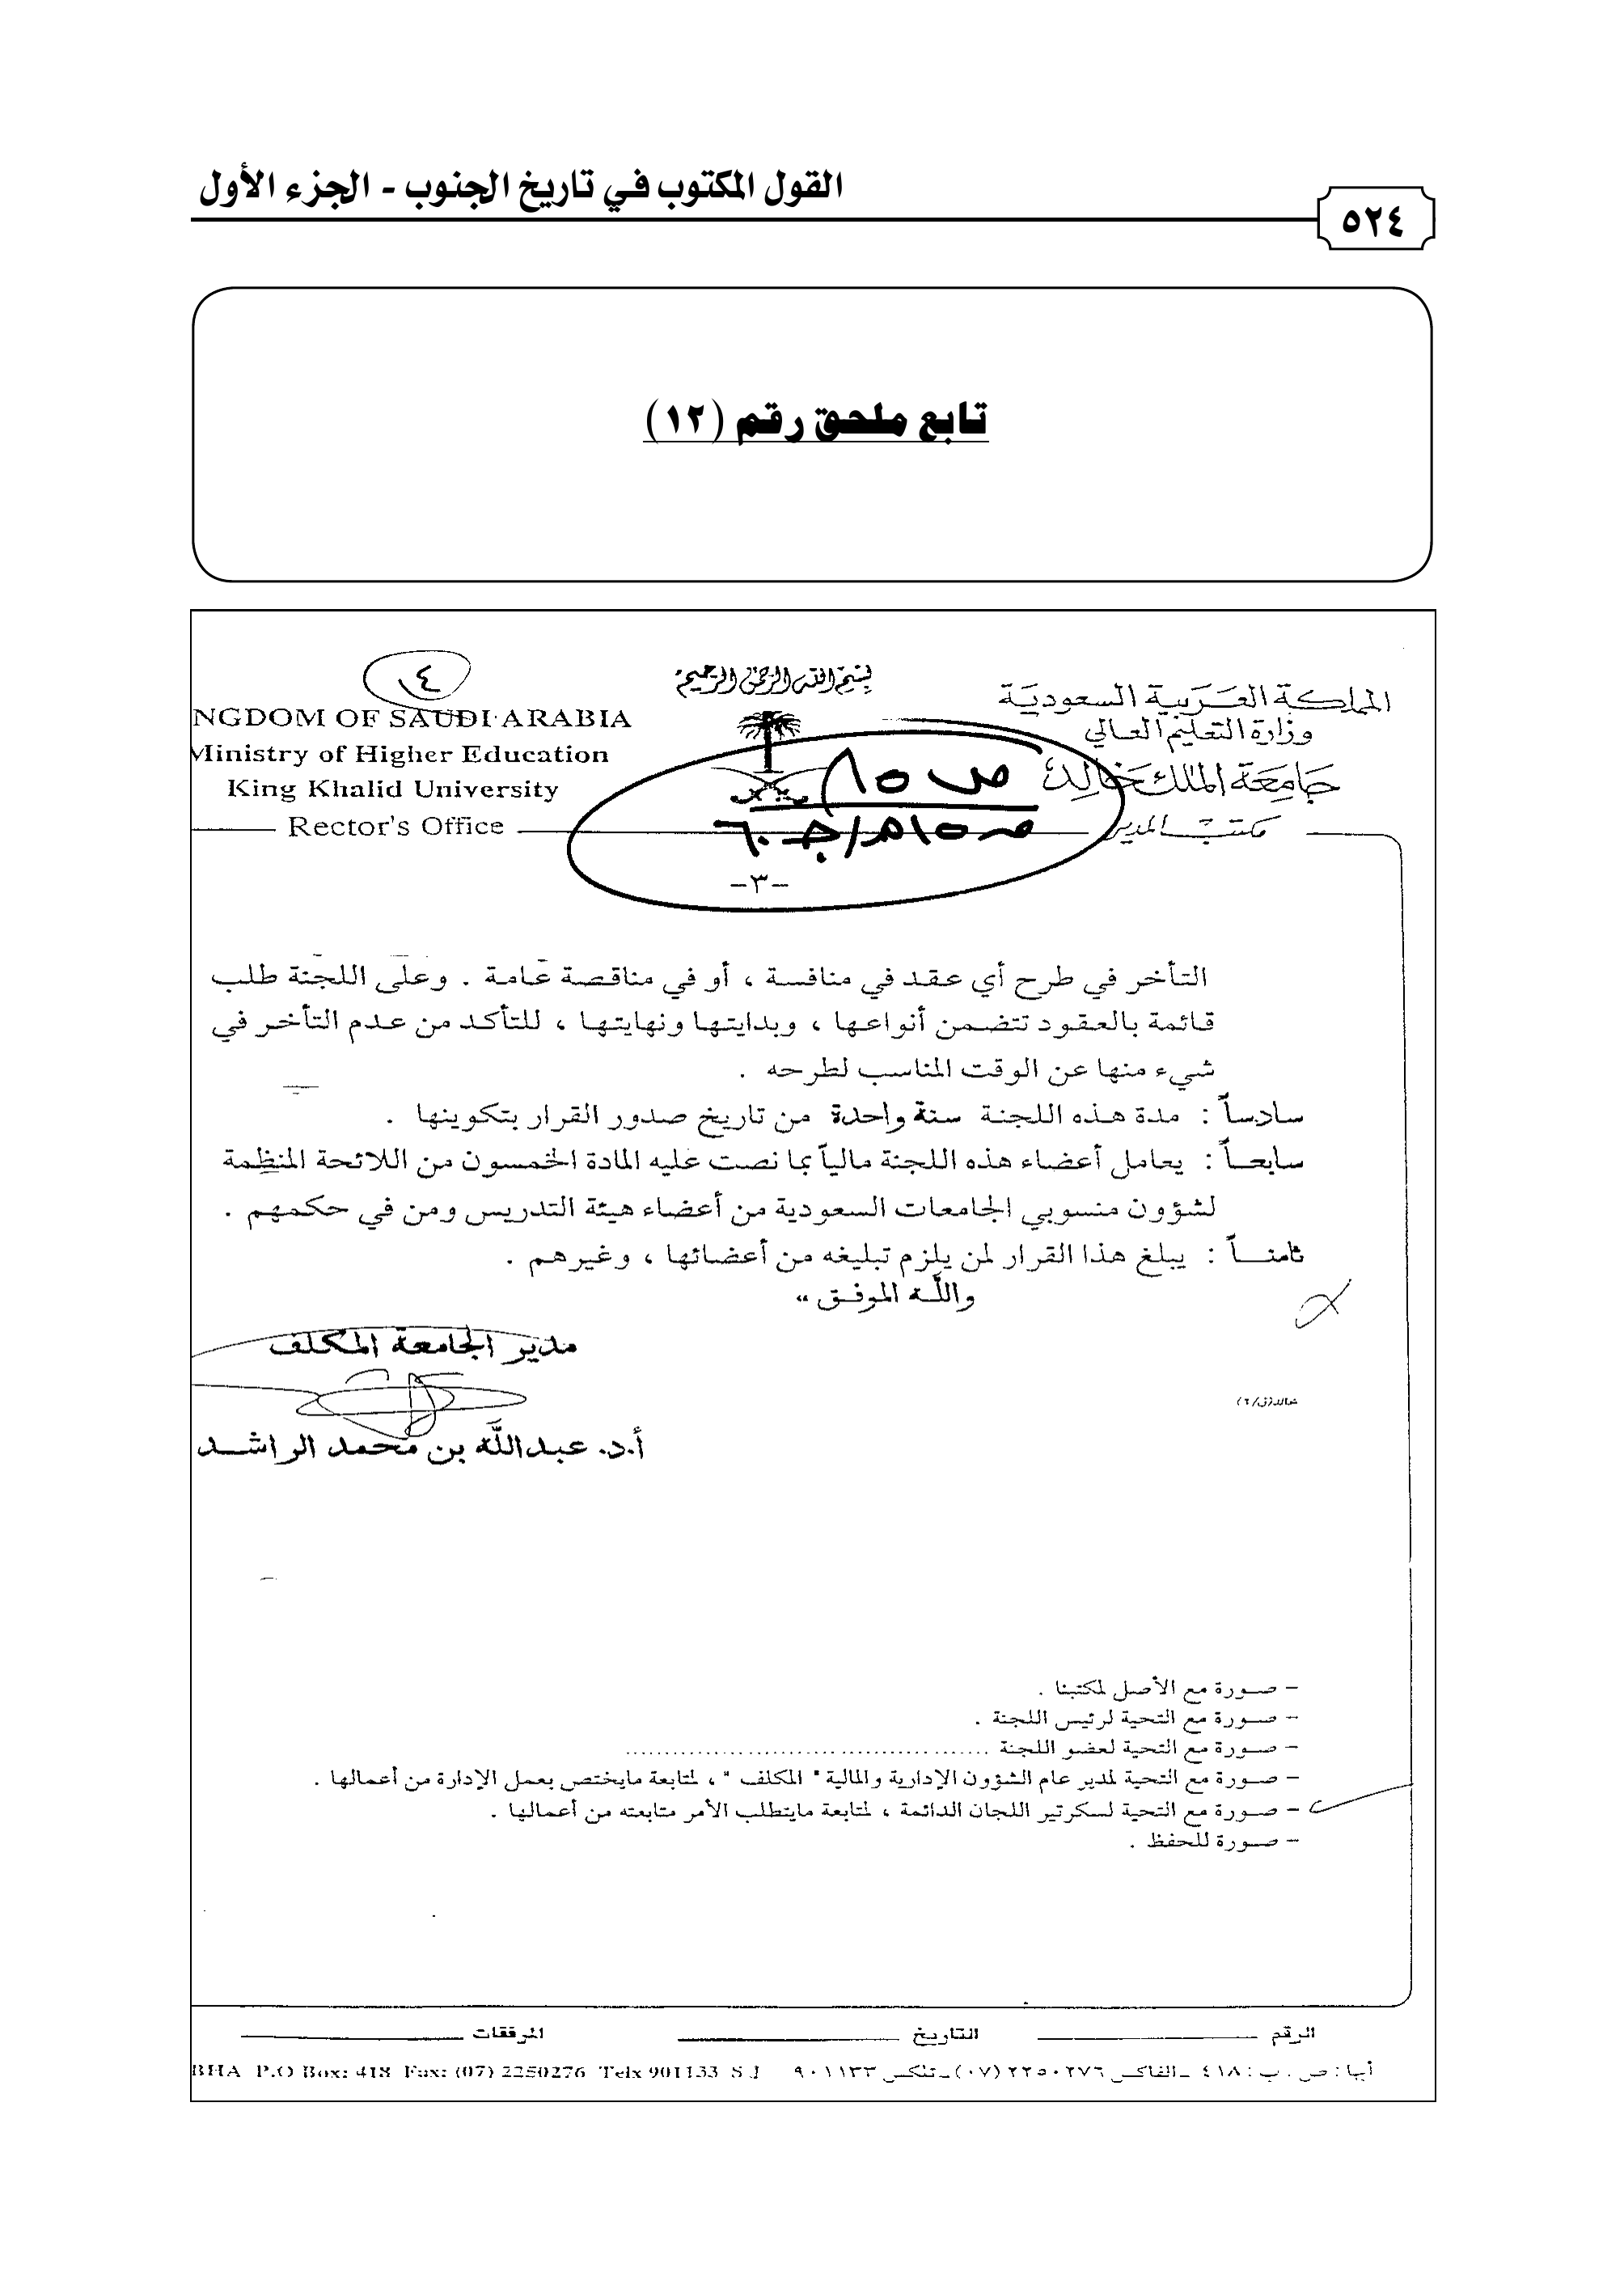 القول المكتوب في تاريخ الجنوب - الجزء الأول
٥٢٤
تابع ملحق رقم (١٢)
٤
بسم الله الرحمن الرحيم
المملكة العربية السعودية
وزارة التعليم العالي
جامعة الملك خالد
مكتب المدير
NGDOM OF SAUDI ARABIA
Ministry of Higher Education
King Khalid University
Rector's Office
-٣-
التأخر في طرح أي عقد في منافسة ، أو في مناقصة عامة . وعلى اللجنة طلب
قائمة بالعقود تتضمن أنواعها ، وبدايتها ونهايتها ، للتأكد من عدم التأخر في
شيء منها عن الوقت المناسب لطرحه .
سادساً : مدة هذه اللجنة سنة واحدة من تاريخ صدور القرار بتكوينها .
سابعاً : يعامل أعضاء هذه اللجنة مالياً بما نصت عليه المادة الخمسون من اللائحة المنظمة
لشؤون منسوبي الجامعات السعودية من أعضاء هيئة التدريس ومن في حكمهم .
ثامناً : يبلغ هذا القرار لمن يلزم تبليغه من أعضائها ، وغيرهم .
والله الموفق ،،
مدير الجامعة المكلف
أ.د. عبدالله بن محمد الراشد
– صورة مع الأصل لمكتبنا .
– صورة مع التحية لرئيس اللجنة .
– صورة مع التحية لعضو اللجنة ..........................................
– صورة مع التحية لمدير عام الشؤون الإدارية والمالية " المكلف " ، لمتابعة مايختص بعمل الإدارة من أعمالها .
– صورة مع التحية لسكرتير اللجان الدائمة ، لمتابعة مايتطلب الأمر متابعته من أعمالها .
– صورة للحفظ .
الرقم التاريخ المرفقات
أبها : ص . ب : ٤١٨ ـ الفاكس ٢٢٥٠٢٧٦ (٠٧) ـ تلكس ٩٠١١٣٣
BHA P.O Box: 418 Fax: (07) 2250276 Telx 901133 S.J